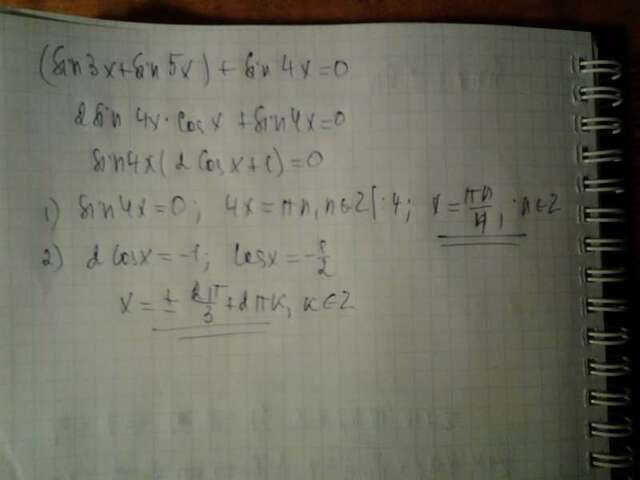 (sin 3x + sin 5x) + sin 4x = 0
2 sin 4x · cos x + sin 4x = 0
sin 4x (2 cos x + 1) = 0
1) sin 4x = 0; 4x = πn, n ∈ Z | : 4; x = πn/4, n ∈ Z
2) 2 cos x = -1; cos x = -1/2
x = ± 2π/3 + 2πk, k ∈ Z